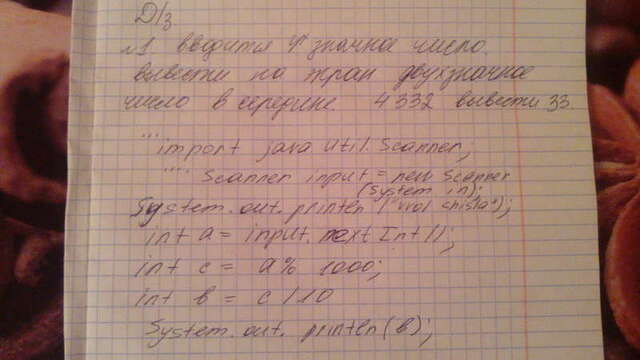 Д/з
№1 вводится 4х значное число.
вывести на экран двухзначное
число в середине. 4332 вывести 33.
""import java util. Scanner;
"" Scanner input = new Scanner
(System. in);
System. out. println ("vvod chisla");
int a = input. next Int ();
int c = a % 1000;
int b = c / 10
System. out. println (b);